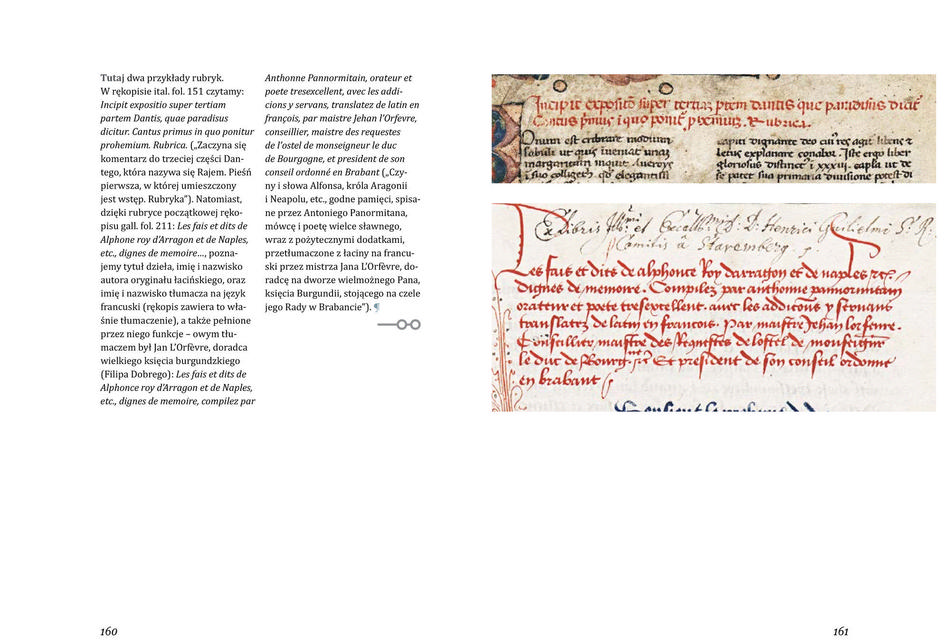 Tutaj dwa przykłady rubryk.
W rękopisie ital. fol. 151 czytamy:
Incipit expositio super tertiam
partem Dantis, quae paradisus
dicitur. Cantus primus in quo ponitur
prohemium. Rubrica. („Zaczyna się
komentarz do trzeciej części Dan-
tego, która nazywa się Rajem. Pieśń
pierwsza, w której umieszczony
jest wstęp. Rubryka”). Natomiast,
dzięki rubryce początkowej ręko-
pisu gall. fol. 211: Les fais et dits de
Alphone roy d’Arragon et de Naples,
etc., dignes de memoire…, pozna-
jemy tytuł dzieła, imię i nazwisko
autora oryginału łacińskiego, oraz
imię i nazwisko tłumacza na język
francuski (rękopis zawiera to wła-
śnie tłumaczenie), a także pełnione
przez niego funkcje – owym tłu-
maczem był Jan L’Orfèvre, doradca
wielkiego księcia burgundzkiego
(Filipa Dobrego): Les fais et dits de
Alphonce roy d’Arragon et de Naples,
etc., dignes de memoire, compilez par
Anthonne Pannormitain, orateur et
poete tresexcellent, avec les addi-
cions y servans, translatez de latin en
françois, par maistre Jehan l’Orfevre,
conseillier, maistre des requestes
de l’ostel de monseigneur le duc
de Bourgogne, et president de son
conseil ordonné en Brabant („Czy-
ny i słowa Alfonsa, króla Aragonii
i Neapolu, etc., godne pamięci, spisa-
ne przez Antoniego Panormitana,
mówcę i poetę wielce sławnego,
wraz z pożytecznymi dodatkami,
przetłumaczone z łaciny na francu-
ski przez mistrza Jana L’Orfèvre, do-
radcę na dworze wielmożnego Pana,
księcia Burgundii, stojącego na czele
jego Rady w Brabancie”). ¶
160
Incipit expositio super tertiam ptem dantis que paradisus dicit
Cantus primus i quo ponit phemium. Rubrica.
Ex Libris et D. D. Henrici Guilielmi S. R.
Comitis à Staremberg.
Les fais et dits de alphonce Roy darragon et de naples etc.
dignes de memoire. Compilez par anthonne pannormitain
orateur et poete tresexcellent. avec les addicions y servans
translatez de latin en francois. Par maistre Jehan lorfevre.
Conseillier maistre des Requestes de lostel de monseigneur
le duc de Bourgne Et president de son conseil ordonne
en brabant
161